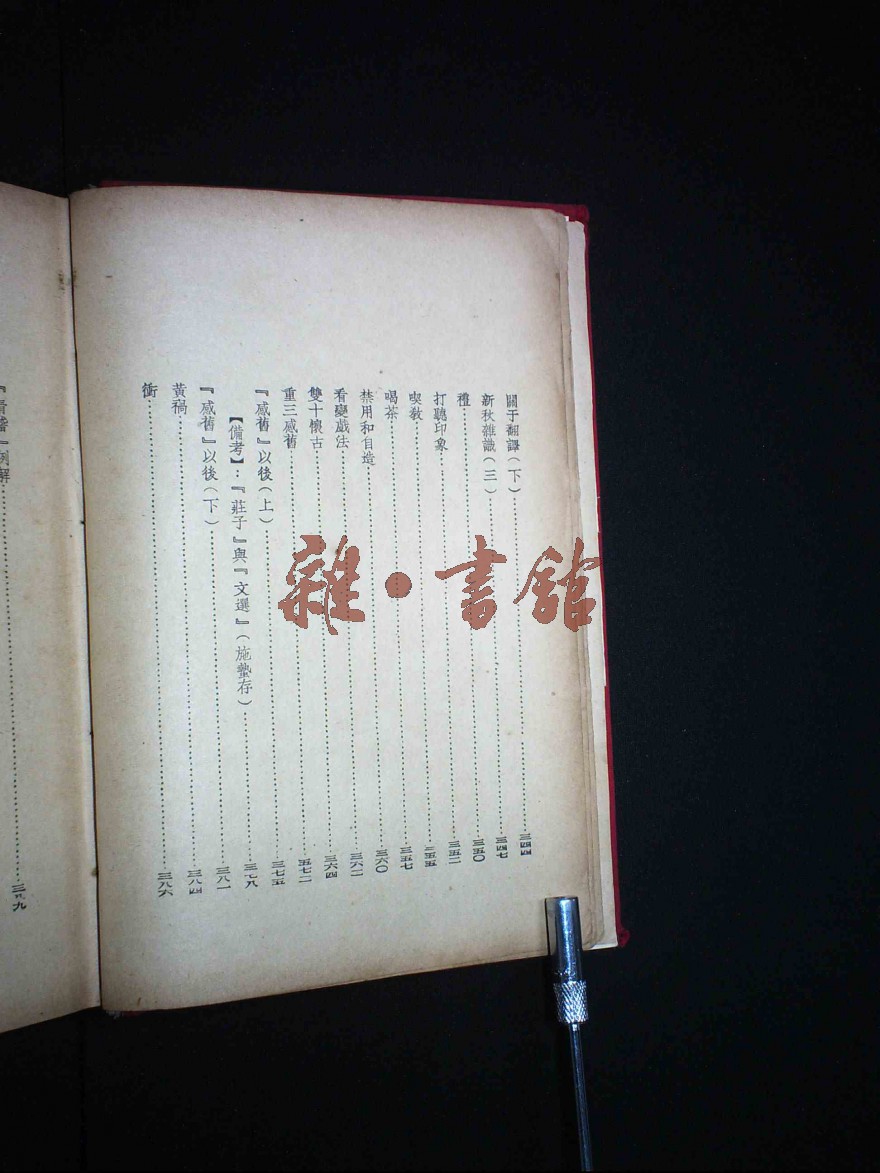 關于翻譯（下）……三四四
新秋雜識（三）……三四七
禮……三五〇
打聽印象……三五二
喫教……三五五
喝茶……三五七
禁用和自造……三六〇
看變戲法……三六二
雙十懷古……三六四
重三感舊……五七二
『感舊』以後（上）……三七五
【備考】：『莊子』與『文選』（施蟄存）……三七八
『感舊』以後（下）……三八一
黃禍……三八四
衝……三八六
』例解……三八九
雜·書舘